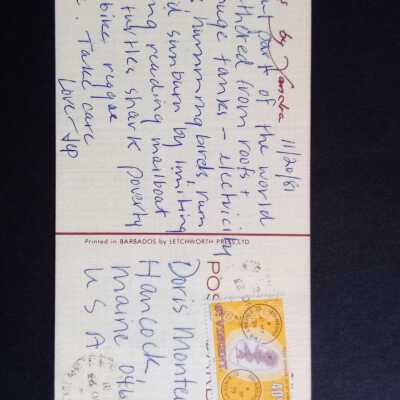 s by Vandra
11/20/81
part of the world
thered from roofs +
huge tanks - electricity
s hummingbirds rum
d sunburn by limiting
ng reading mailboat
turtles shark poverty
bike reggae
Take care
Love - Jep
Printed in BARBADOS by LETCHWORTH PRESS LTD
POS
Doris Monte
Hancock
maine 046
U S A
ST VINCENT